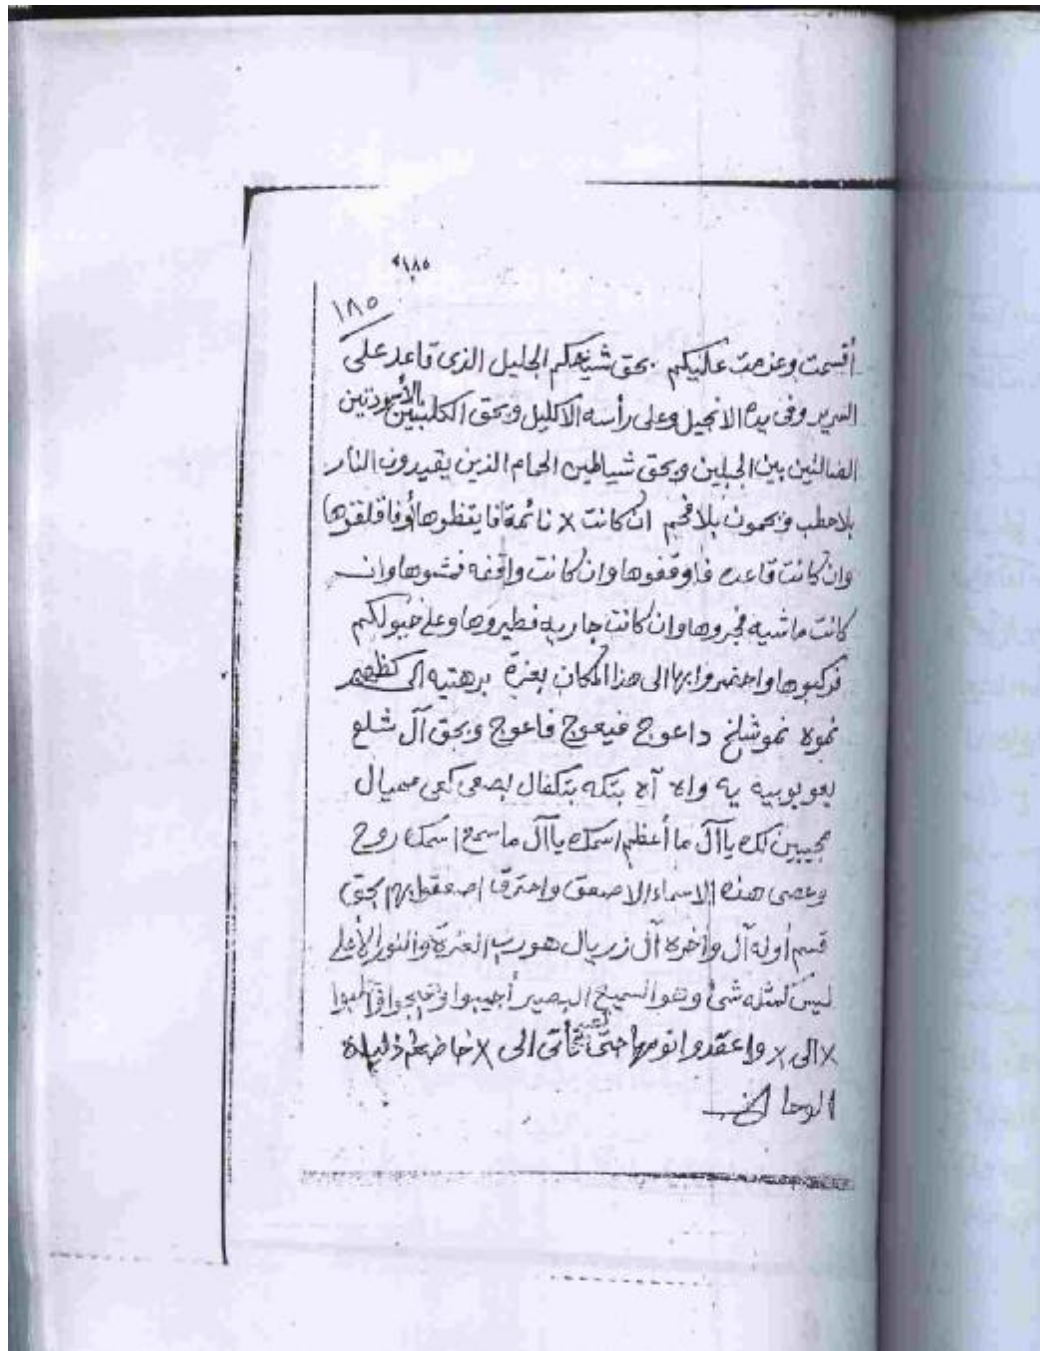 ١٨٥
١٨٥
أقسمت وعزمت عليكم بحق شيخكم الجليل الذى قاعد على
السرير وفى يده الانجيل وعلى رأسه الاكليل وبحق الكلبين الأسودين
الضالين بين الجبلين وبحق شياطين الحمام الذين يقيدون النار
بلا حطب وبحمون بلا فحم ان كانت x نائمة فايقظوها أو فاقلقوها
وان كانت قاعده فاوقفوها وان كانت واقفه فمشوها وان
كانت ماشيه فجروها وان كانت جاريه فطيروها وعلى خيولكم
فركبوها واحضروا بها الى هذا المكان بعزة برهتيه الى
نموه نموشلخ داعوج فيعوج فاعوج وبحق آل شلع
يعو يوبيه يه واه آه بتكه بتكفال بصعى كعى مميال
مجيبين لك يا آل ما أعظم اسمك يا آل ما سمع اسمك روح
وعصى هذه الاسماء الا صعق واحترق اصعقوا بهم بحق
قسم أوله آل وآخره آل زريال هو رب العزة والنور الأعلى
ليس كمثله شئ وهو السميع البصير أجيبوا
x الى x واعقدوا نومها حتى تأتى الى x خاضعه ذليلة
الوحا